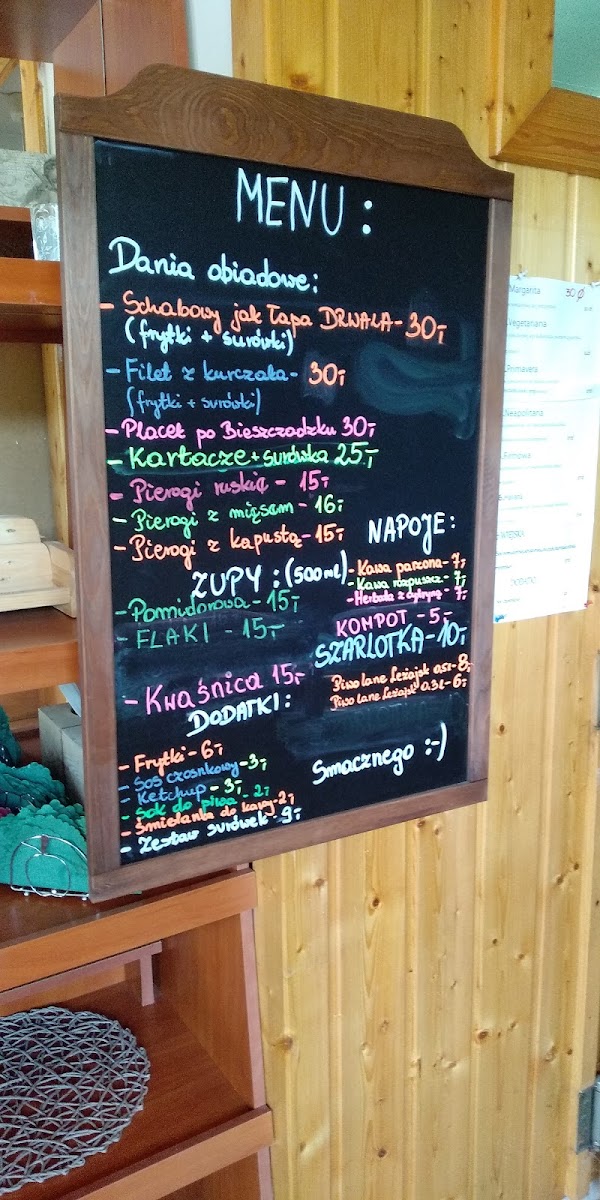 MENU :
Dania obiadowe:
- Schabowy jak Łapa DRWALA - 30,-
(frytki + surówki)
- Filet z kurczaka - 30,-
(frytki + surówki)
- Placek po Bieszczadzku 30,-
- Kartacze + surówka 25,-
- Pierogi ruskie - 15,-
- Pierogi z mięsem - 16,-
- Pierogi z kapustą - 15,-
ZUPY : (500 ml)
- Pomidorowa - 15,-
- FLAKI - 15,-
- Kwaśnica 15,-
DODATKI :
- Frytki - 6,-
- Sos czosnkowy - 3,-
- Ketchup - 3,-
- Sok do piwa - 2,-
- Śmietanka do kawy - 2,-
- Zestaw surówek - 9,-
NAPOJE :
- Kawa parzona - 7,-
- Kawa rozpuszcz - 7,-
- Herbata z cytryną - 7,-
KOMPOT - 5,-
SZARLOTKA - 10,-
Piwo lane Leżajsk 0,5l - 8,-
Piwo lane Leżajsk 0,3l - 6,-
Smacznego :-)
Margarita 30
Vegetariana
Primavera
Neapolitana
Firmowa